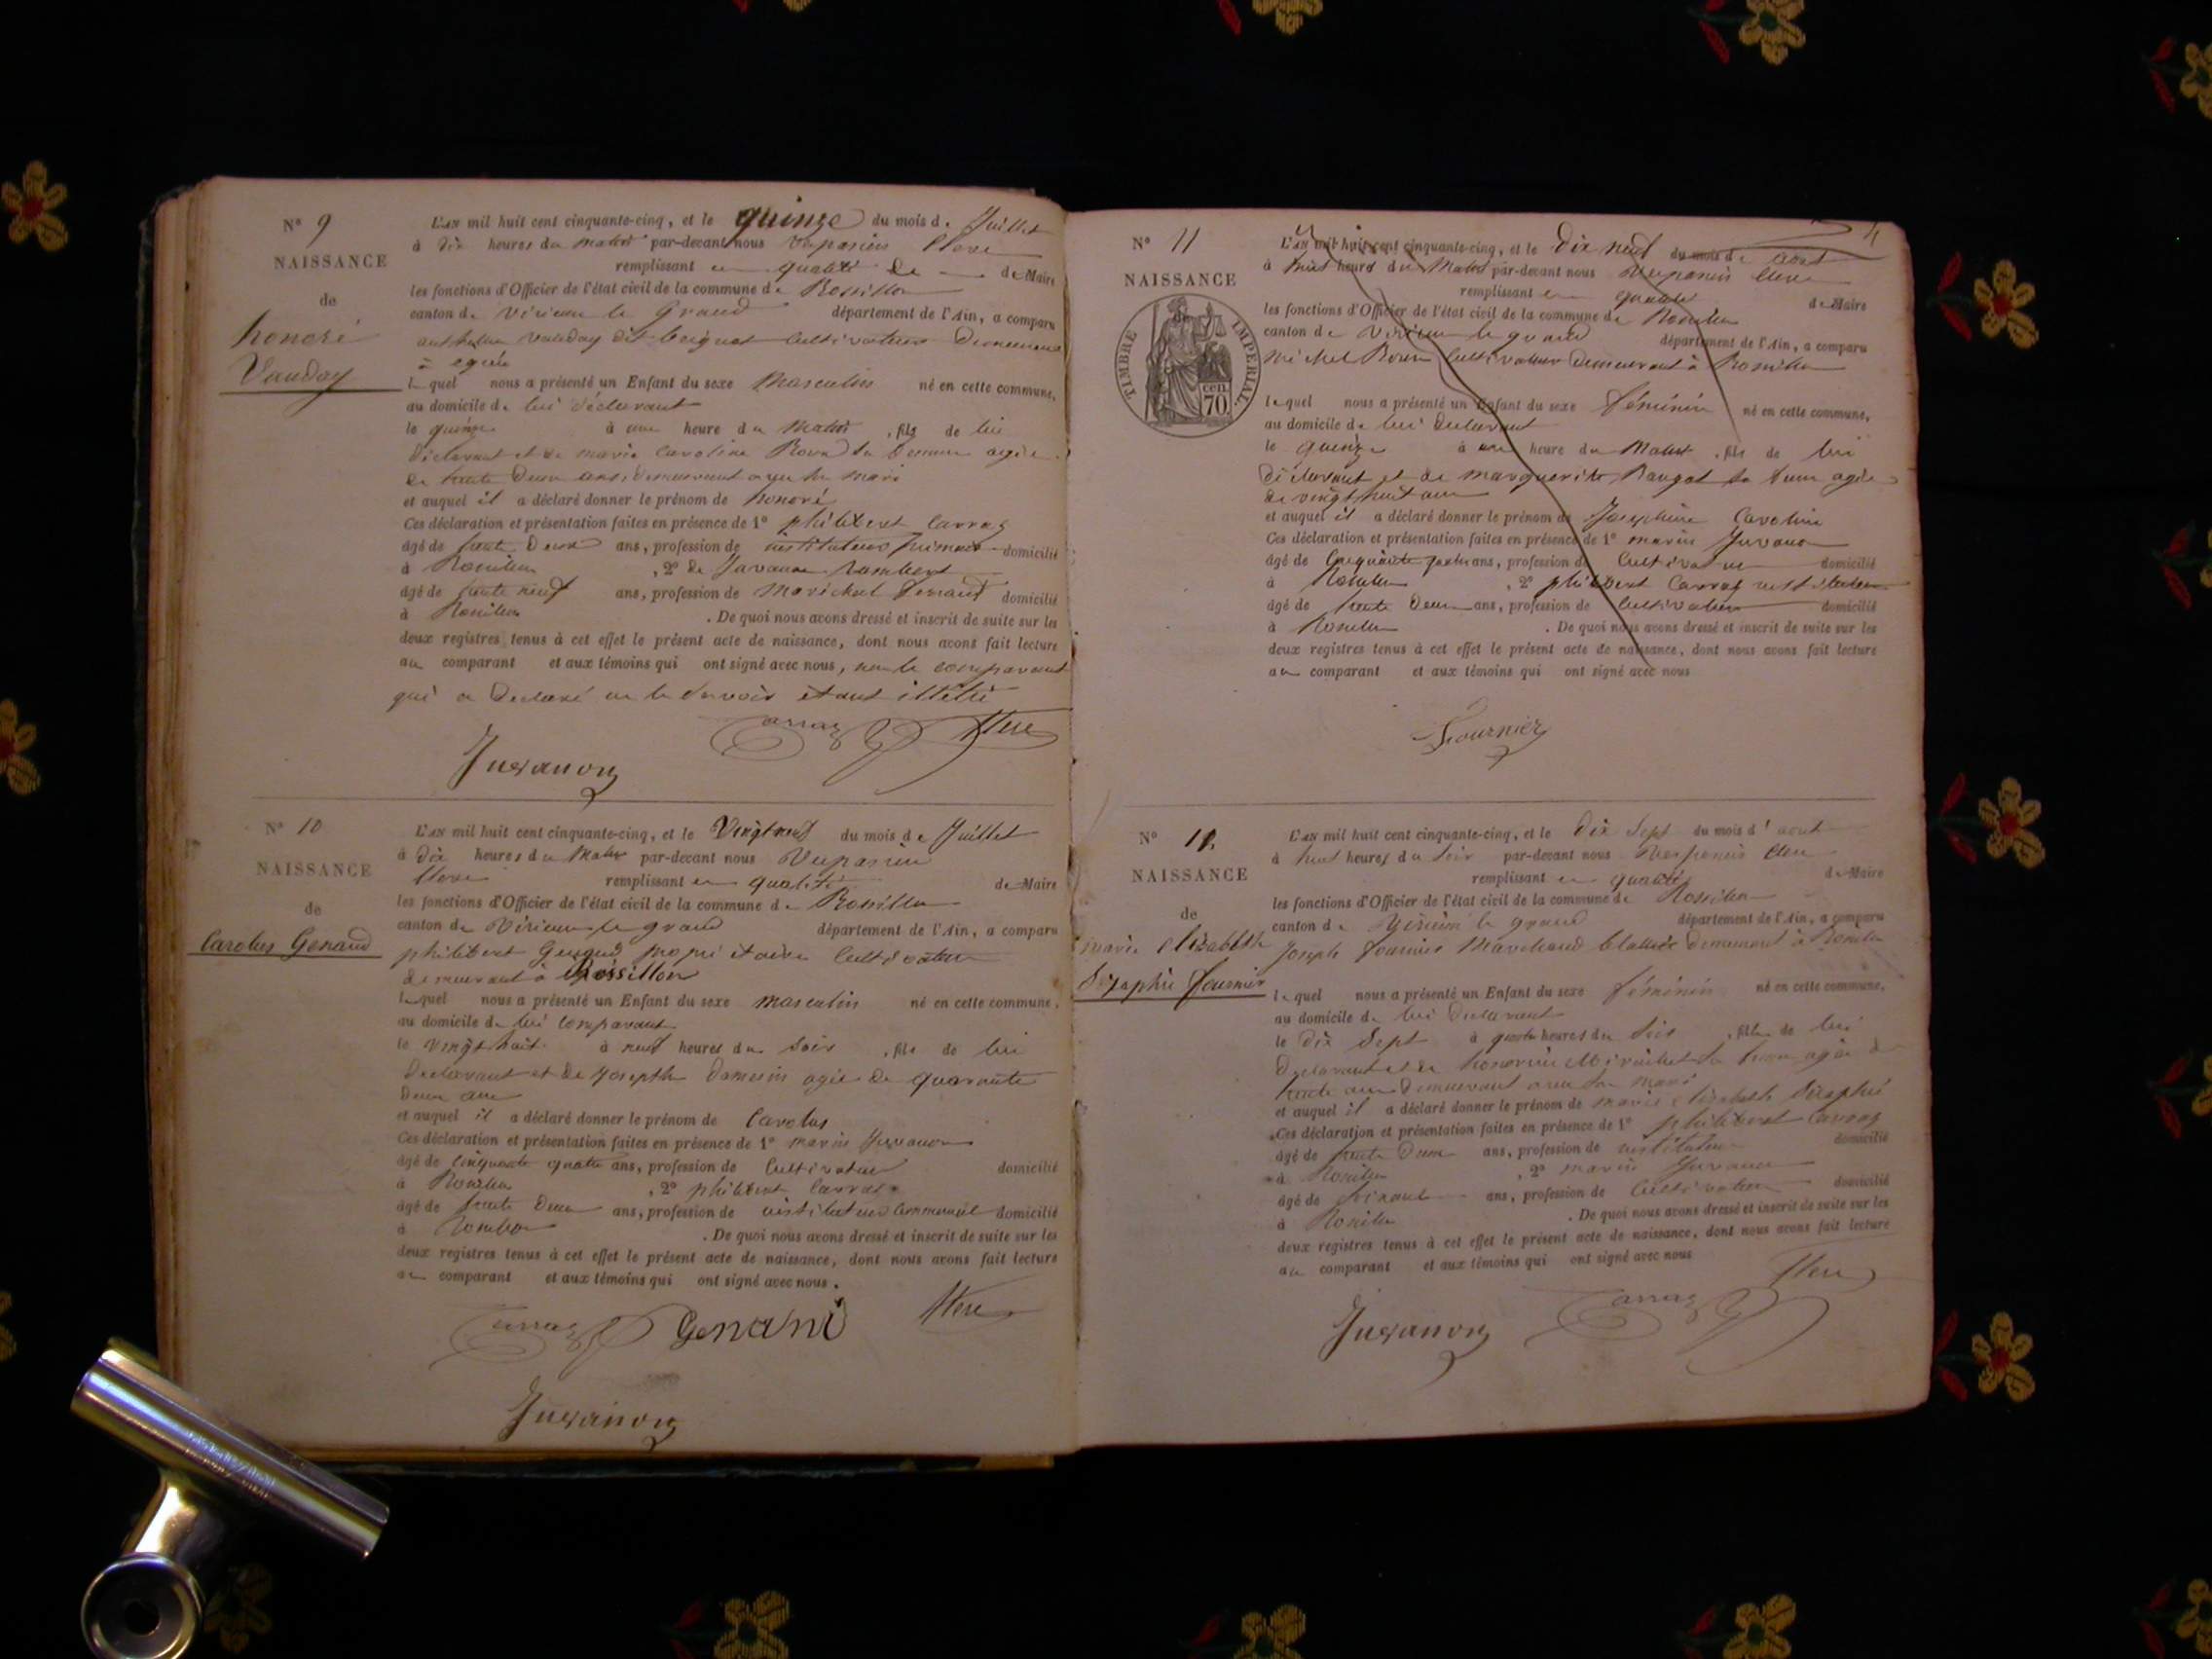 N° 9
NAISSANCE
de
honoré
Vauday
L'AN mil huit cent cinquante-cinq, et le quinze du mois de Juillet
à dix heures du matin par-devant nous
remplissant en qualité de de Maire
les fonctions d'Officier de l'état civil de la commune de Rossillon
canton de Virieu le grand département de l'Ain, a comparu
vauday dit cultivateur demeurant
à
lequel nous a présenté un Enfant du sexe Masculin né en cette commune,
au domicile de lui déclarant
le quinze à une heure du Matin, fils de lui
déclarant et de marie caroline sa femme agée
de trente deux ans, demeurant avec son mari
et auquel il a déclaré donner le prénom de honoré
Ces déclaration et présentation faites en présence de 1° philibert Carraz
âgé de trente deux ans, profession de instituteur primaire domicilié
à Rossillon, 2° de Juvanon Rambert
âgé de trente neuf ans, profession de Maréchal ferrand domicilié
à Rossillon. De quoi nous avons dressé et inscrit de suite sur les
deux registres tenus à cet effet le présent acte de naissance, dont nous avons fait lecture
au comparant et aux témoins qui ont signé avec nous, non le comparant
qui a déclaré ne le savoir étant
Carraz
Juvanon
N° 10
NAISSANCE
de
Carolus Genaud
L'AN mil huit cent cinquante-cinq, et le Vingt neuf du mois de Juillet
à dix heures du Matin par-devant nous
remplissant en qualité de Maire
les fonctions d'Officier de l'état civil de la commune de Rossillon
canton de Virieu le grand département de l'Ain, a comparu
philibert propriétaire cultivateur
demeurant à Rossillon
lequel nous a présenté un Enfant du sexe masculin né en cette commune,
au domicile de lui comparant
le vingt huit à neuf heures du soir, fils de lui
declarant et de Josephte agée de quarante
deux ans
et auquel il a déclaré donner le prénom de Carolus
Ces déclaration et présentation faites en présence de 1° marin Juvanon
âgé de cinquante quatre ans, profession de cultivateur domicilié
à Rossillon, 2° philibert Carraz
âgé de trente deux ans, profession de instituteur communal domicilié
à Rossillon. De quoi nous avons dressé et inscrit de suite sur les
deux registres tenus à cet effet le présent acte de naissance, dont nous avons fait lecture
au comparant et aux témoins qui ont signé avec nous.
Carraz
Juvanon
4
N° 11
NAISSANCE
TIMBRE IMPERIAL
cen.
70
L'AN mil huit cent cinquante-cinq, et le dix neuf du mois de août
à huit heures du Matin par-devant nous
remplissant en qualité de Maire
les fonctions d'Officier de l'état civil de la commune de Rossillon
canton de Virieu le grand département de l'Ain, a comparu
Michel cultivateur demeurant à Rossillon
lequel nous a présenté un Enfant du sexe féminin né en cette commune,
au domicile de lui declarant
le quinze à une heure du Matin, fils de lui
déclarant et de marguerite sa femme agée
de vingt huit ans
et auquel il a déclaré donner le prénom de Josephine Caroline
Ces déclaration et présentation faites en présence de 1° marin Juvanon
âgé de cinquante quatre ans, profession de cultivateur domicilié
à Rossillon, 2° philibert Carraz instituteur
âgé de trente deux ans, profession de cultivateur domicilié
à Rossillon. De quoi nous avons dressé et inscrit de suite sur les
deux registres tenus à cet effet le présent acte de naissance, dont nous avons fait lecture
au comparant et aux témoins qui ont signé avec nous
Fournier
N° 11
NAISSANCE
de
marie elizabeth
Séraphie fournier
L'AN mil huit cent cinquante-cinq, et le dix sept du mois d'août
à huit heures du soir par-devant nous
remplissant en qualité de Maire
les fonctions d'Officier de l'état civil de la commune de Rossillon
canton de Virieu le grand département de l'Ain, a comparu
Joseph fournier Marchand demeurant à Rossillon
lequel nous a présenté un Enfant du sexe féminin né en cette commune,
au domicile de lui declarant
le dix sept à quatre heures du soir, fille de lui
declarant et de honorine sa femme agée de
trente ans demeurant avec son mari
et auquel il a déclaré donner le prénom de marie elizabeth Séraphie
Ces déclaration et présentation faites en présence de 1° philibert Carraz
âgé de trente deux ans, profession de instituteur domicilié
à Rossillon, 2° marin Juvanon
âgé de ans, profession de cultivateur domicilié
à Rossillon. De quoi nous avons dressé et inscrit de suite sur les
deux registres tenus à cet effet le présent acte de naissance, dont nous avons fait lecture
au comparant et aux témoins qui ont signé avec nous
Carraz
Juvanon